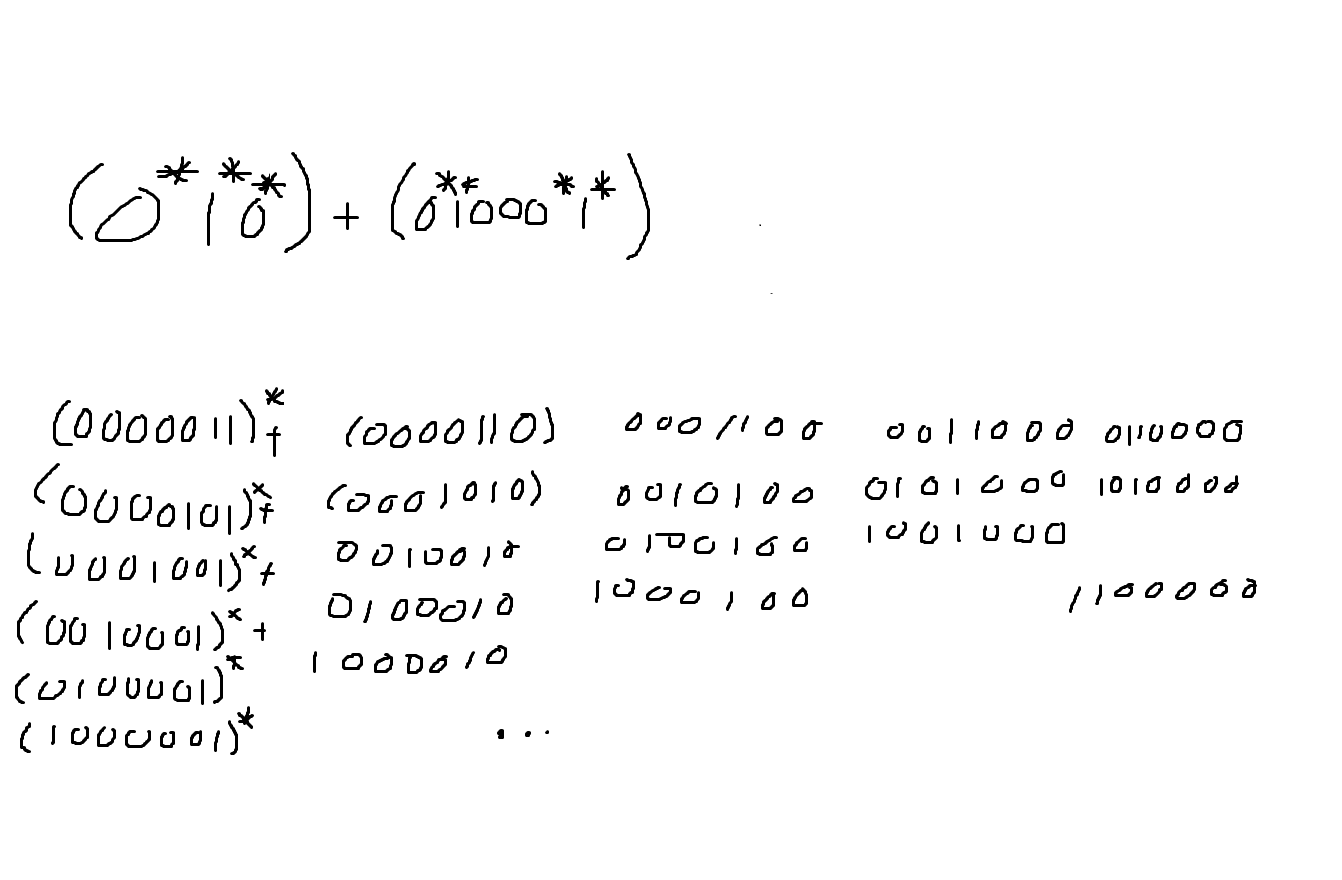 (0*1*0*) + (0*1*000*1*)
(0000011)*+ (0000110) 0001100 0011000 0110000
(0000101)*+ (0001010) 0010100 0101000 1010000
(0001001)*+ 0010010 0100100 1001000
(0010001)*+ 0100010 1000100 1100000
(0100001)* 1000010
(1000001)* ...